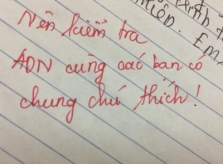 Nên kiểm tra
ADN cũng các bạn có
chung chú thích!